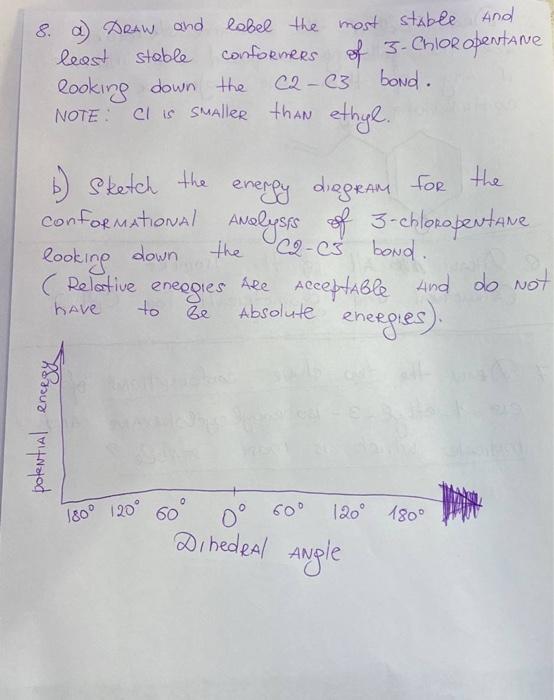 8. a) Draw and label the most stable and
least stable conformers of 3-Chloropentane
looking down the C2-C3 bond.
NOTE: Cl is smaller than ethyl.
b) Sketch the energy diagram for the
conformational analysis of 3-chloropentane
looking down the C2-C3 bond.
(Relative energies are acceptable and do not
have to be absolute energies).
potential energy
180° 120° 60° 0° 60° 120° 180°
Dihedral angle